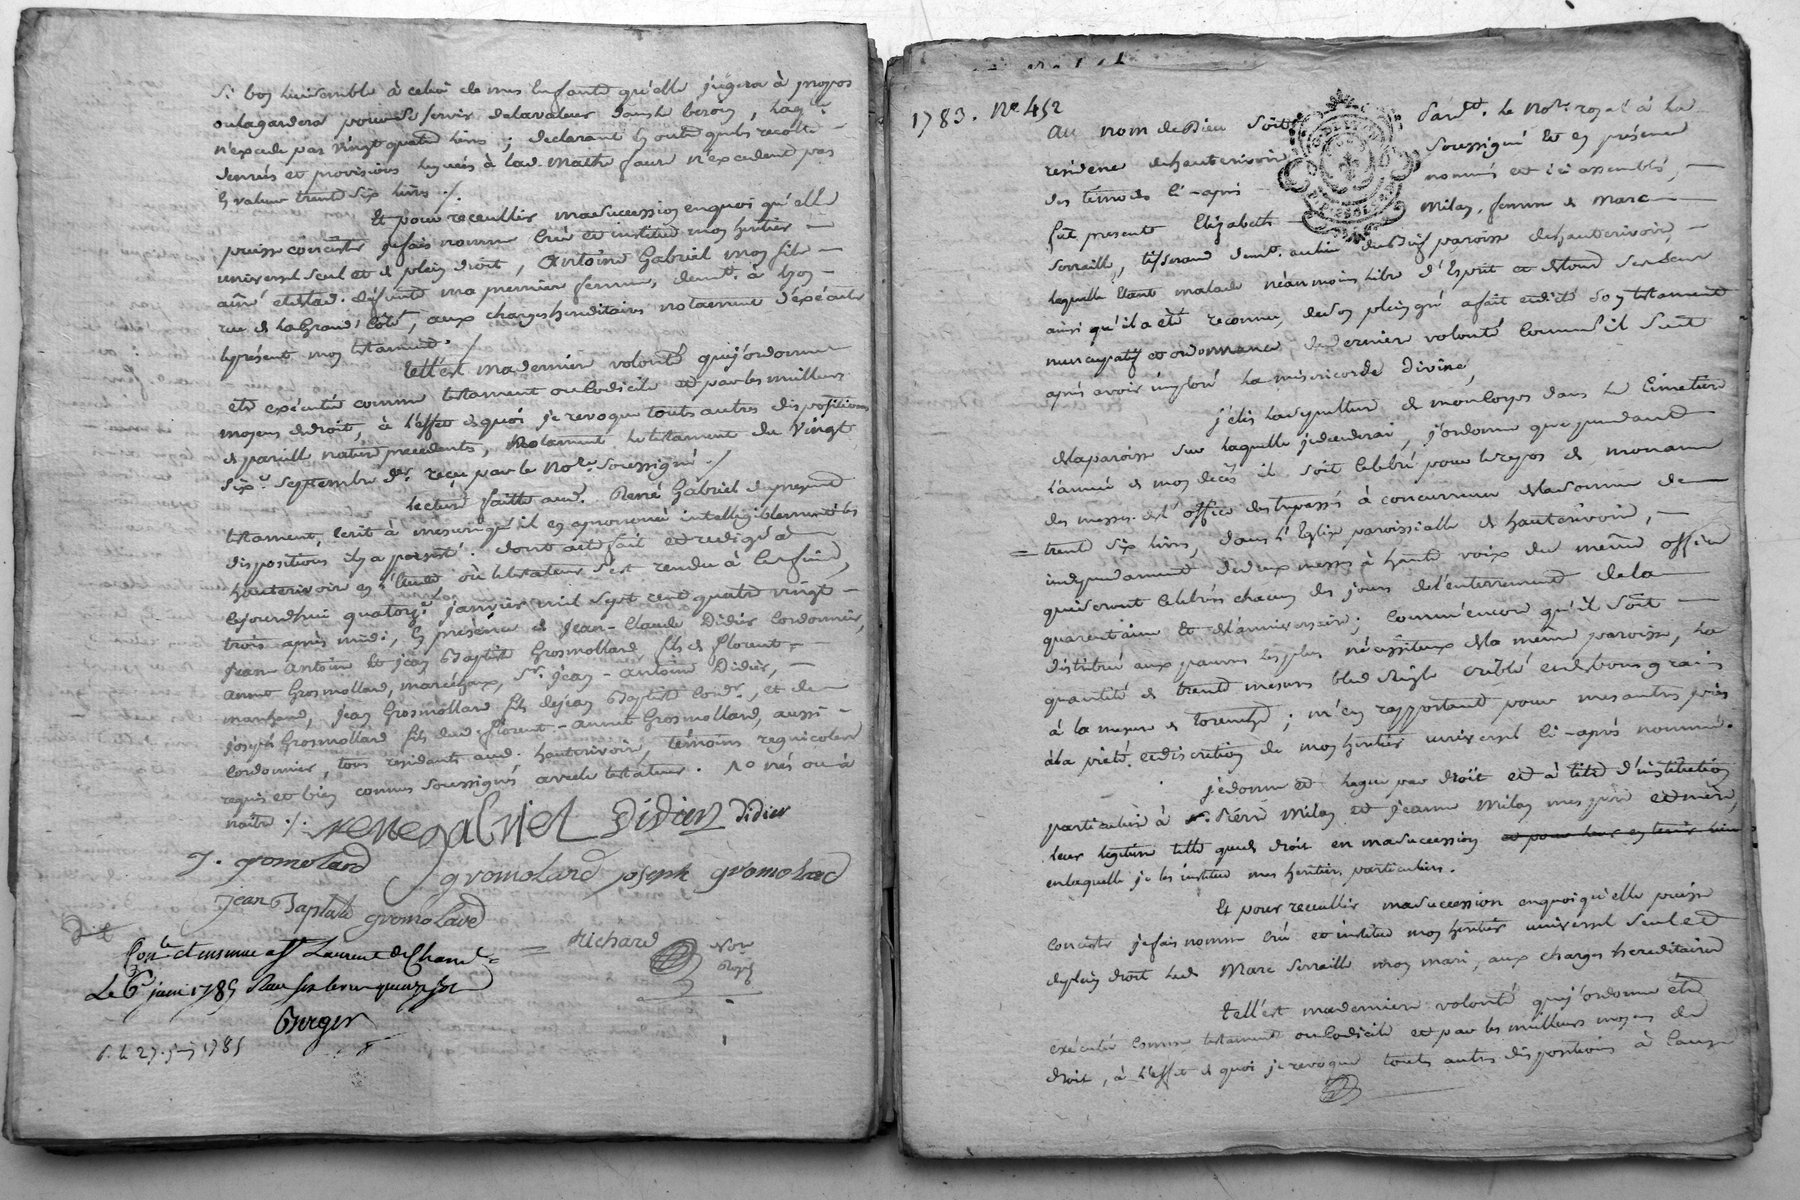 si bon lui semble à celui de mes enfants qu'elle jugera à propos
ou la gardera pour se servir de la valeur dans le besoin, laq.lle
n'excede pas vingt quatre livres; declarant en outre que les recolte
denrées et provisions leguées à lad. Mathe faure n'excedent pas
en valeur trente six livres ./.
Et pour receullir ma succession en quoi qu'elle
puisse concister je fais nomme créé et institue mon heritier
universel seul et de plein droit, Antoine Gabriel mon fils
ainé et de lad. défunte ma premiere femme, demt. à Lyon
rue de la Grand' Côte, aux charges hereditaires notament d'éxécuter
le présent mon testament ./
tell'est ma derniere volonté que j'ordonne
etre exécutée comme testament ou codicile et par les meilleurs
moyens de droit, à l'effet de quoi je revoque touts autres dispositions
de pareille nature precedents, notament le testament du vingt
six.e septembre der. reçu par le No.re soussigné ./
lecture faitte aud. René Gabriel du present
testament, ecrit à mesure qu'il en a prononcé intelligiblement les
dispositions il y a persisté. dont acte fait et redigé à
hauterivoir en l'etude où le testateur s'est rendu à cette fin,
cejourdhui quatorz.e janvier mil sept cent quatre vingt
trois après midi, en presence de Jean-Claude Didier cordonnier,
Jean Antoine et Jean Baptiste Grosmollard fils de florent
annet Grosmollard, maréchaux, Sr. Jean-Antoine Didier,
marchand, Jean Grosmollard fils de Jean Baptiste cord.r, et de
Joseph Grosmollard fils dud. florent-annet Grosmollard, aussi
cordonnier, tous residants aud. hauterivoir, témoins regnicoles
requis et bien connus soussignés avec le testateur. No nés ou à
naitre ./.
rene gabriel Didier Didier
J. gromolard gromolard joseph gromolard
jean Baptiste gromolard
Richard Nore Royal
Con.lé et insinué a St Laurent de Cham.
Le 6e janv 1785 Recu six livres quinze sols
Berger
1785
1783. No. 452
Au nom de Dieu soit Pard.t le Nore. royal à la
residence de hauterivoir soussigné et en présence
des témoins ci-après nommés et ici assemblés,
fut presente Elizabeth Milan, femme de Marc
Serraille, tisserand demt. au lieu du paroisse de hauterivoir,
laquelle etant malade néanmoins libre d'esprit et de tous ses sens
ainsi qu'il a été reconnu, de son plein gré a fait et dicté son testament
nuncupatif et ordonnance de derniere volonté comme s'il suit
après avoir imploré la misericorde divine,
j'elis la sepulture de mon corps dans le cimetiere
de la paroisse sur laquelle je decederai, j'ordonne que pendant
l'année de mon decès il soit celebré pour le repos de mon ame
des messes de l'office des trepassés à concurrence de la somme de
trente six livres, dans l'Eglise paroissialle de hauterivoir,
independament de deux messes à haute voix du même office
qui seront celebrées chacune des jours de l'enterrement de la
quarentaine et de l'anniversaire; comm'encore qu'il soit
distribué aux pauvres les plus nécéssiteux de la même paroisse, la
quantité de trente mesures bled seigle criblé et de bons grains
à la mesure de ; m'en rapportant pour mes autres prières
à la pieté et discretion de mon heritier universel ci-après nommé.
je donne et legue par droit et à titre d'institution
particuliere à Sr. Pierre Milan et Jeanne Milan mes pere et mere,
leur legitime telle que de droit en ma succession et pour leur en tenir lieu
en laquelle je les institue mes heritiers particuliers.
Et pour receullir ma succession en quoi qu'elle puisse
concister je fais nomme créé et institue mon heritier universel seul et
de plein droit led. Marc Serraille mon mari, aux charges hereditaires
tell'est ma derniere volonté que j'ordonne etre
exécutée comme testament ou codicile et par les meilleurs moyens de
droit, à l'effet de quoi je revoque touts autres dispositions à cause